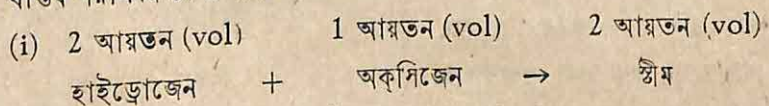 (i) 2 আয়তন (vol) 1 আয়তন (vol) 2 আয়তন (vol)
হাইড্রোজেন + অক্সিজেন → স্টীম